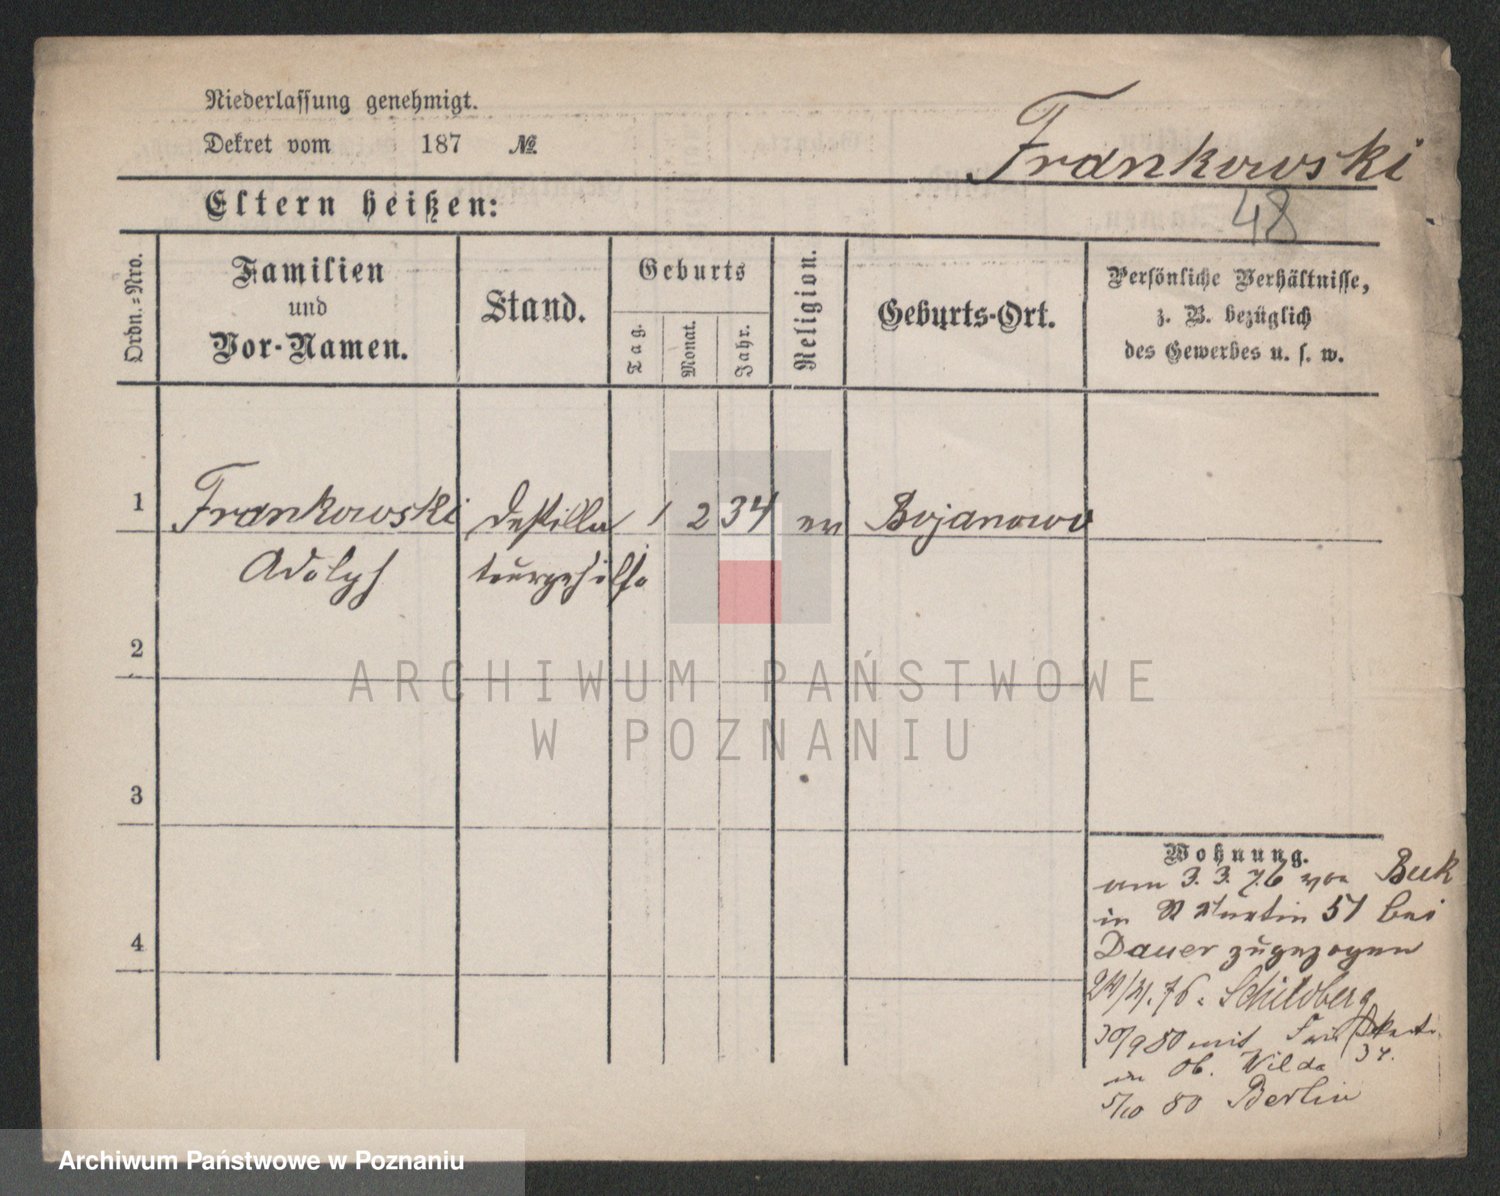 Niederlassung genehmigt.
Dekret vom 187 №
Frankowski
48
Eltern heißen:
Ordn.-Nro.
Familien
und
Vor-Namen.
Stand.
Geburts
Tag.
Monat.
Jahr.
Religion.
Geburts-Ort.
Persönliche Verhältnisse,
z. B. bezüglich
des Gewerbes u. s. w.
1 Frankowski Destilla 1 2 34 ev Bojanowo
Adolph teurgehilfe
2
3
4
Wohnung.
am 3.3.76 von Buk
in St Martin 51 bei
Dauer zugezogen
76. Schildberg
30/9 80 mit
in Ob. Wilda 34.
5/10 80 Berlin
ARCHIWUM PAŃSTWOWE
W POZNANIU
Archiwum Państwowe w Poznaniu